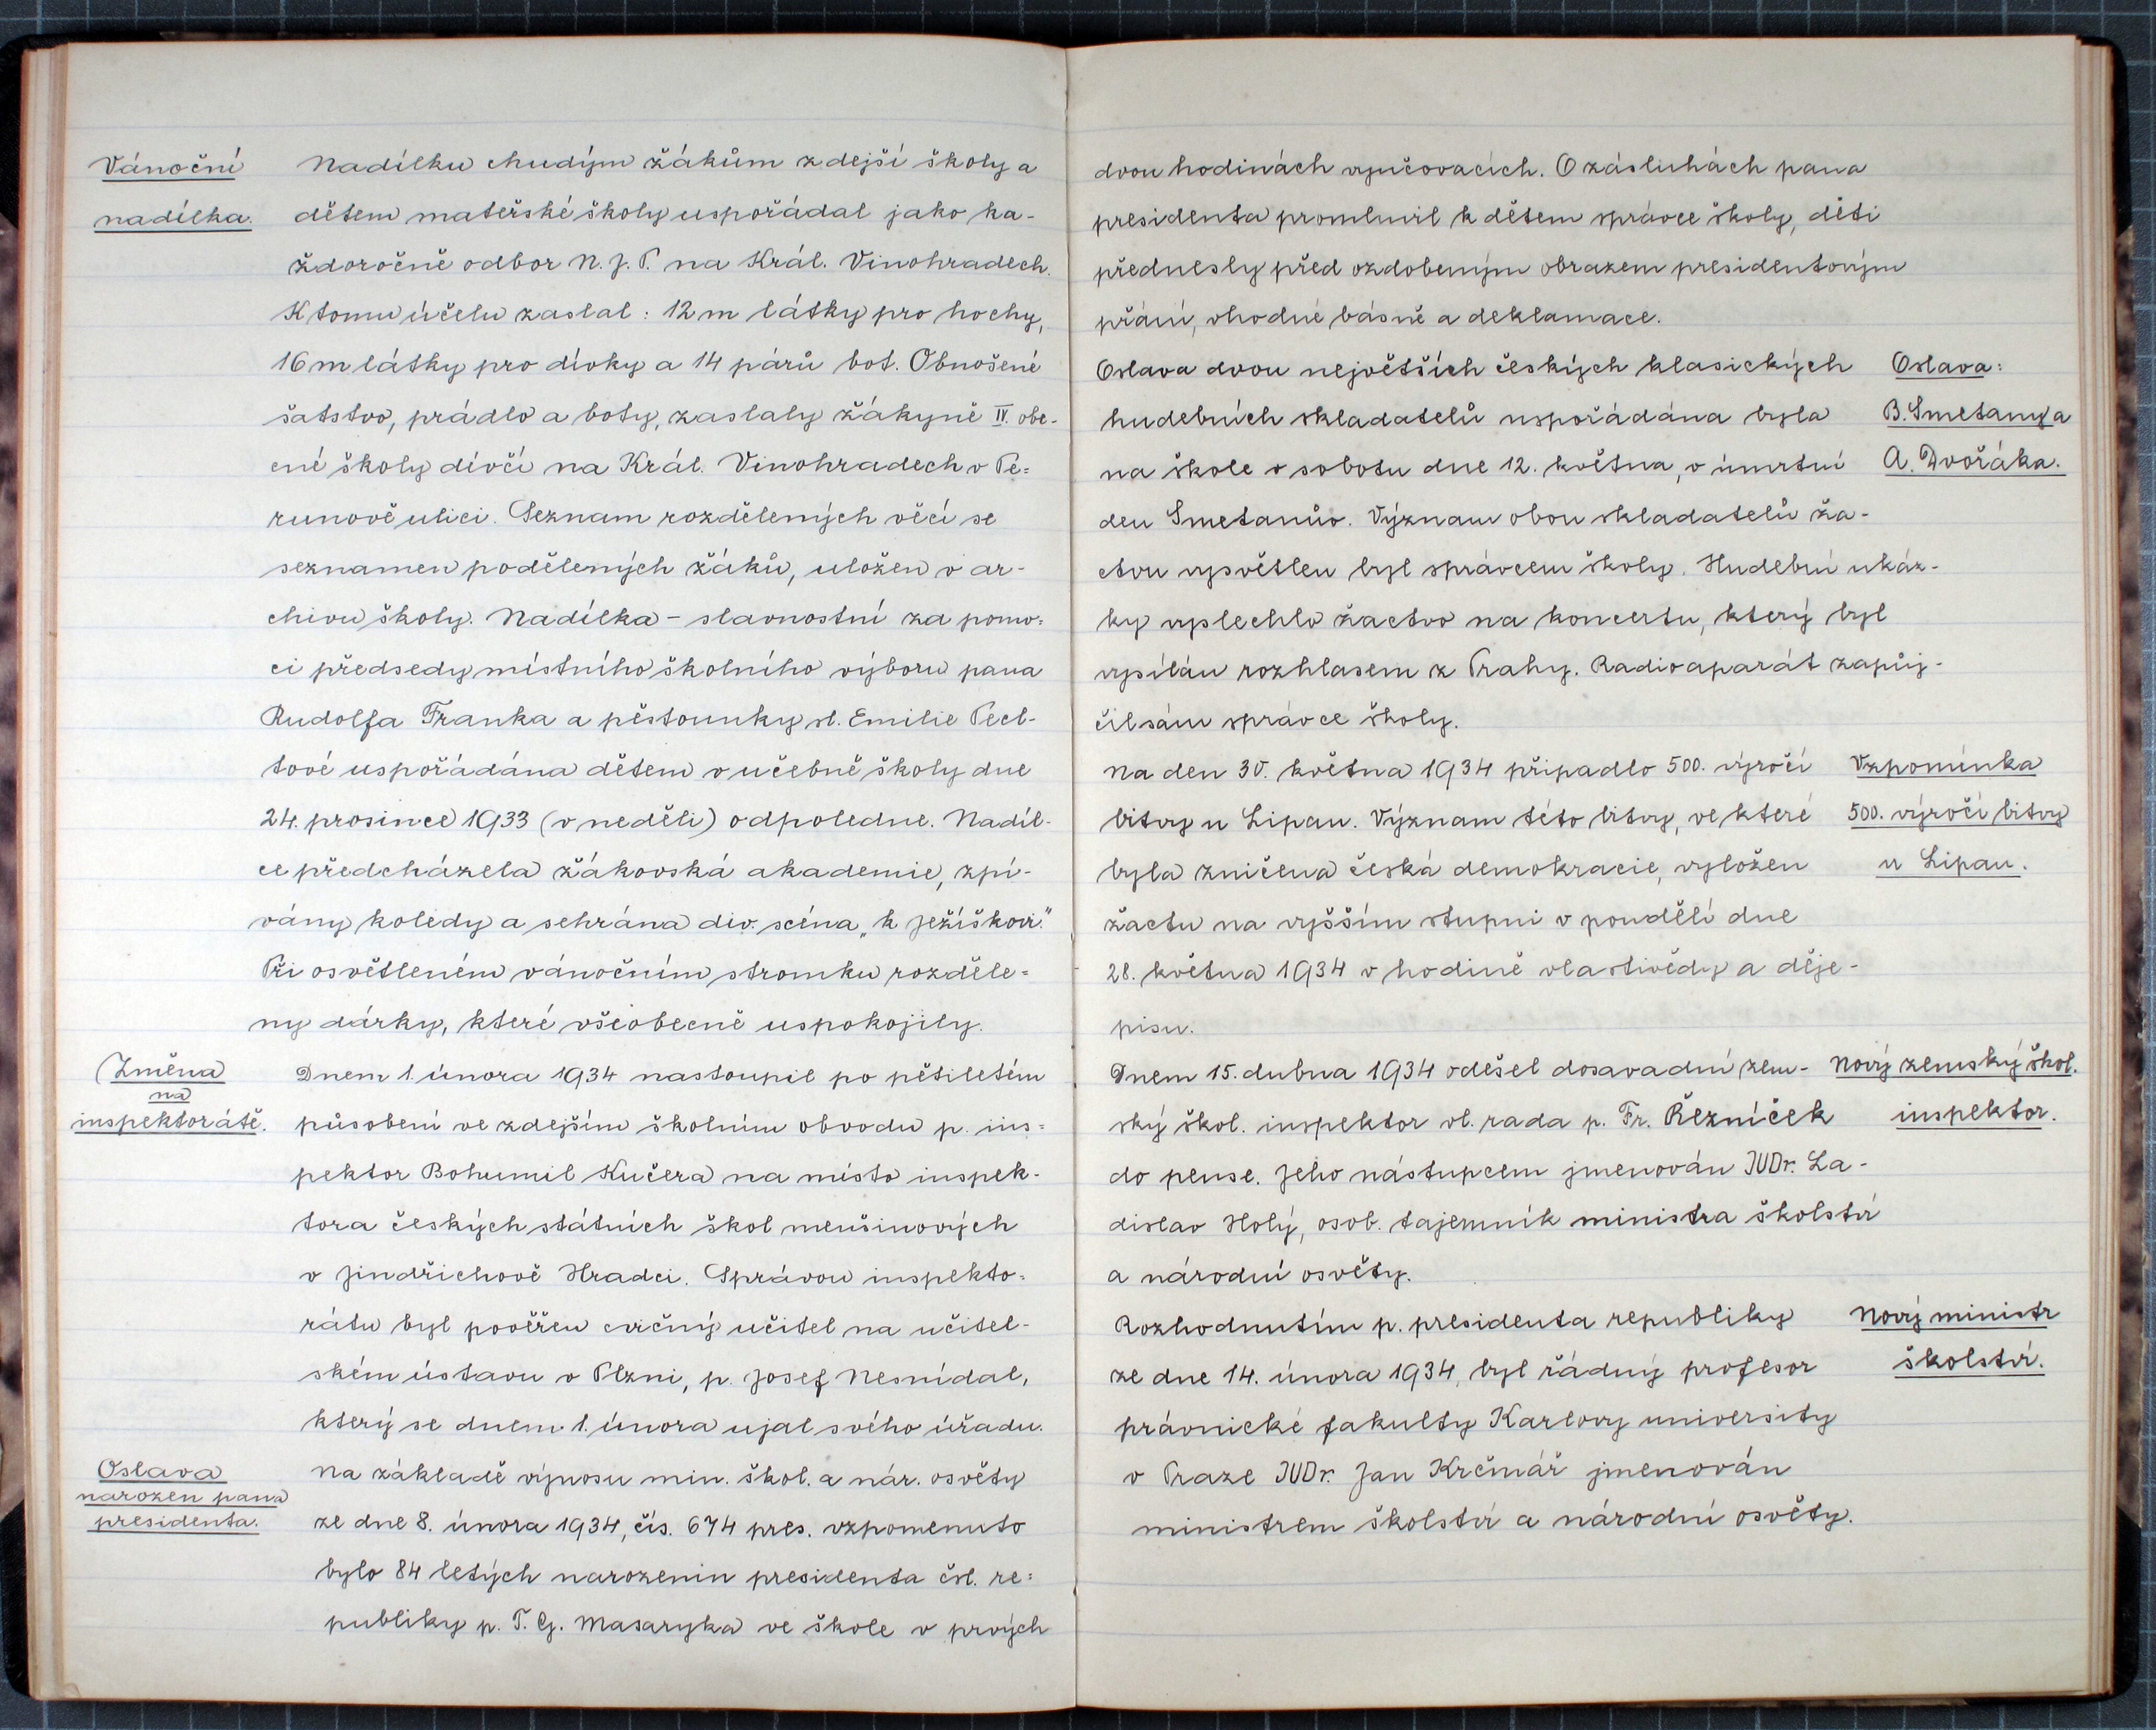 Vánoční
nadílka.
Nadílku chudým žákům zdejší školy a
dětem mateřské školy uspořádal jako ka-
ždoročně odbor N. J. P. na Král. Vinohradech.
K tomu účelu zaslal: 12 m látky pro hochy,
16 m látky pro dívky a 14 párů bot. Obnošené
šatstvo, prádlo a boty, zaslaly žákyně IV. obe-
cné školy dívčí na Král. Vinohradech v Pe=
runově ulici. Seznam rozdělených věcí se
seznamem podělených žáků, uložen v ar-
chivu školy. Nadílka - slavnostní za pomo=
ci předsedy místního školního výboru pana
Rudolfa Franka a pěstounky sl. Emilie Pecl-
tové uspořádána dětem v učebně školy dne
24. prosince 1933 (v neděli) odpoledne. Nadíl-
ce předcházela žákovská akademie, zpí-
vány koledy a sehrána div. scéna „k Ježíškovi.“
Při osvětleném vánočním stromku rozděle=
ny dárky, které všeobecně uspokojily.
Změna
na
inspektorátě.
Dnem 1. února 1934 nastoupil po pětiletém
působení ve zdejším školním obvodu p. ins=
pektor Bohumil Kučera na místo inspek-
tora českých státních škol menšinových
v Jindřichově Hradci. Správou inspekto=
rátu byl pověřen cvičný učitel na učitel-
ském ústavu v Plzni, p. Josef Nesnídal,
který se dnem 1. února ujal svého úřadu.
Oslava
narozen pana
presidenta.
Na základě výnosu min. škol. a nár. osvěty
ze dne 8. února 1934, čís. 674 pres. vzpomenuto
bylo 84 letých narozenin presidenta čsl. re=
publiky p. T. G. Masaryka ve škole v prvých
dvou hodinách vyučovacích. O zásluhách pana
presidenta promluvil k dětem správce školy, děti
přednesly před ozdobeným obrazem presidentovým
přání, vhodné básně a deklamace.
Oslava dvou největších českých klasických
hudebních skladatelů uspořádána byla
na škole v sobotu dne 12. května, v úmrtní
den Smetanův. Význam obou skladatelů ža-
ctvu vysvětlen byl správcem školy. Hudební ukáz-
ky vyslechlo žactvo na koncertu, který byl
vysílán rozhlasem z Prahy. Radioaparát zapůj-
čil sám správce školy.
Oslava:
B. Smetany a
A. Dvořáka.
Na den 30. května 1934 připadlo 500. výročí
bitvy u Lipan. Význam této bitvy, ve které
byla zničena česká demokracie, vyložen
žactvu na vyšším stupni v pondělí dne
28. května 1934 v hodině vlastivědy a děje-
pisu.
Vzpomínka
500. výročí bitvy
u Lipan.
Dnem 15. dubna 1934 odešel dosavadní zem-
ský škol. inspektor vl. rada p. Fr. Řezníček
do pense. Jeho nástupcem jmenován JUDr. La-
dislav Holý, osob. tajemník ministra školství
a národní osvěty.
Nový zemský škol.
inspektor.
Rozhodnutím p. presidenta republiky
ze dne 14. února 1934, byl řádný profesor
právnické fakulty Karlovy university
v Praze JUDr. Jan Krčmář jmenován
ministrem školství a národní osvěty.
Nový ministr
školství.